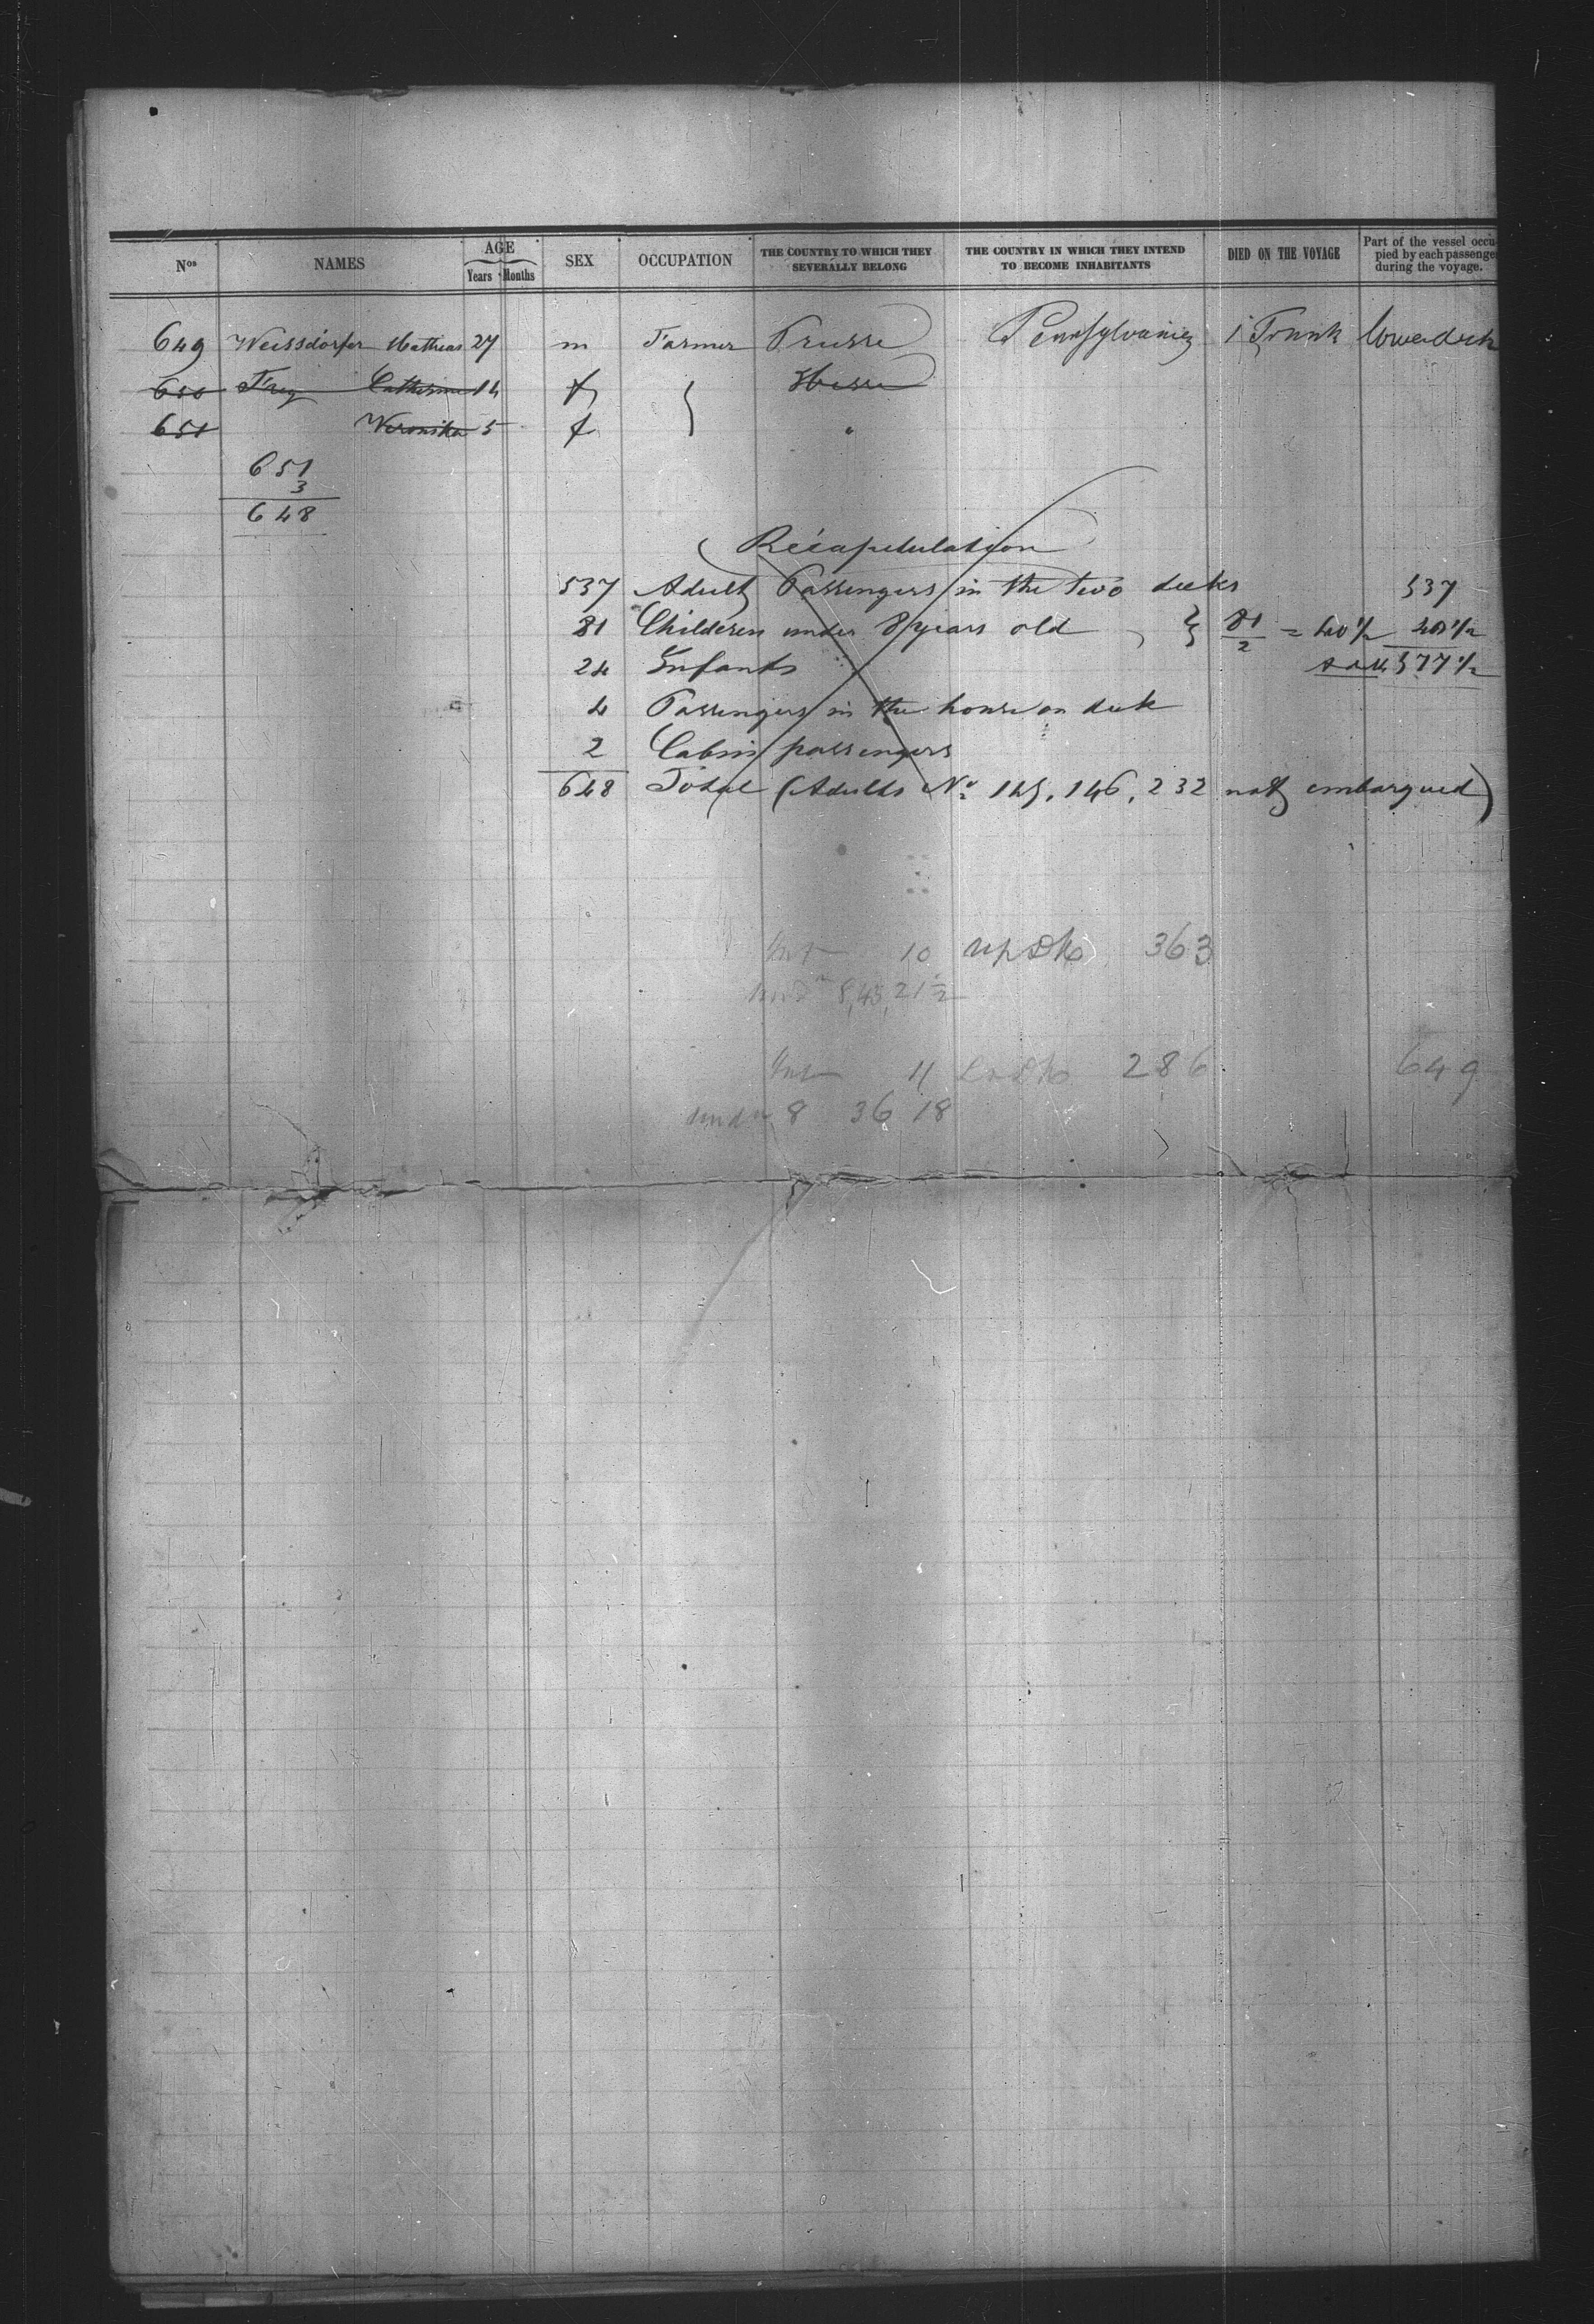 Nos NAMES AGE Years Months SEX OCCUPATION THE COUNTRY TO WHICH THEY SEVERALLY BELONG THE COUNTRY IN WHICH THEY INTEND TO BECOME INHABITANTS DIED ON THE VOYAGE Part of the vessel occupied by each passenge during the voyage.
649 Weissdorfer Mathias 27 m Farmer Prusse Pensylvanien 1 Trunk lowerdeck
650 Frey Catherine 14 f Hesse
651 Veronika 5 f "
651
3
648
Récapitulation
537 Adult Passengers in the two decks 537
81 Children under 8 years old } 81/2 = 40 1/2 40 1/2
24 Infants 577 1/2
4 Passengers in the house on deck
2 Cabin passengers
648 Total (Adults No 145, 146, 232 not embarqued)
Inf 10 up Dk 363
und 8, 43, 21 1/2
Inf 11 Lo Dk 286 649
under 8 36 18